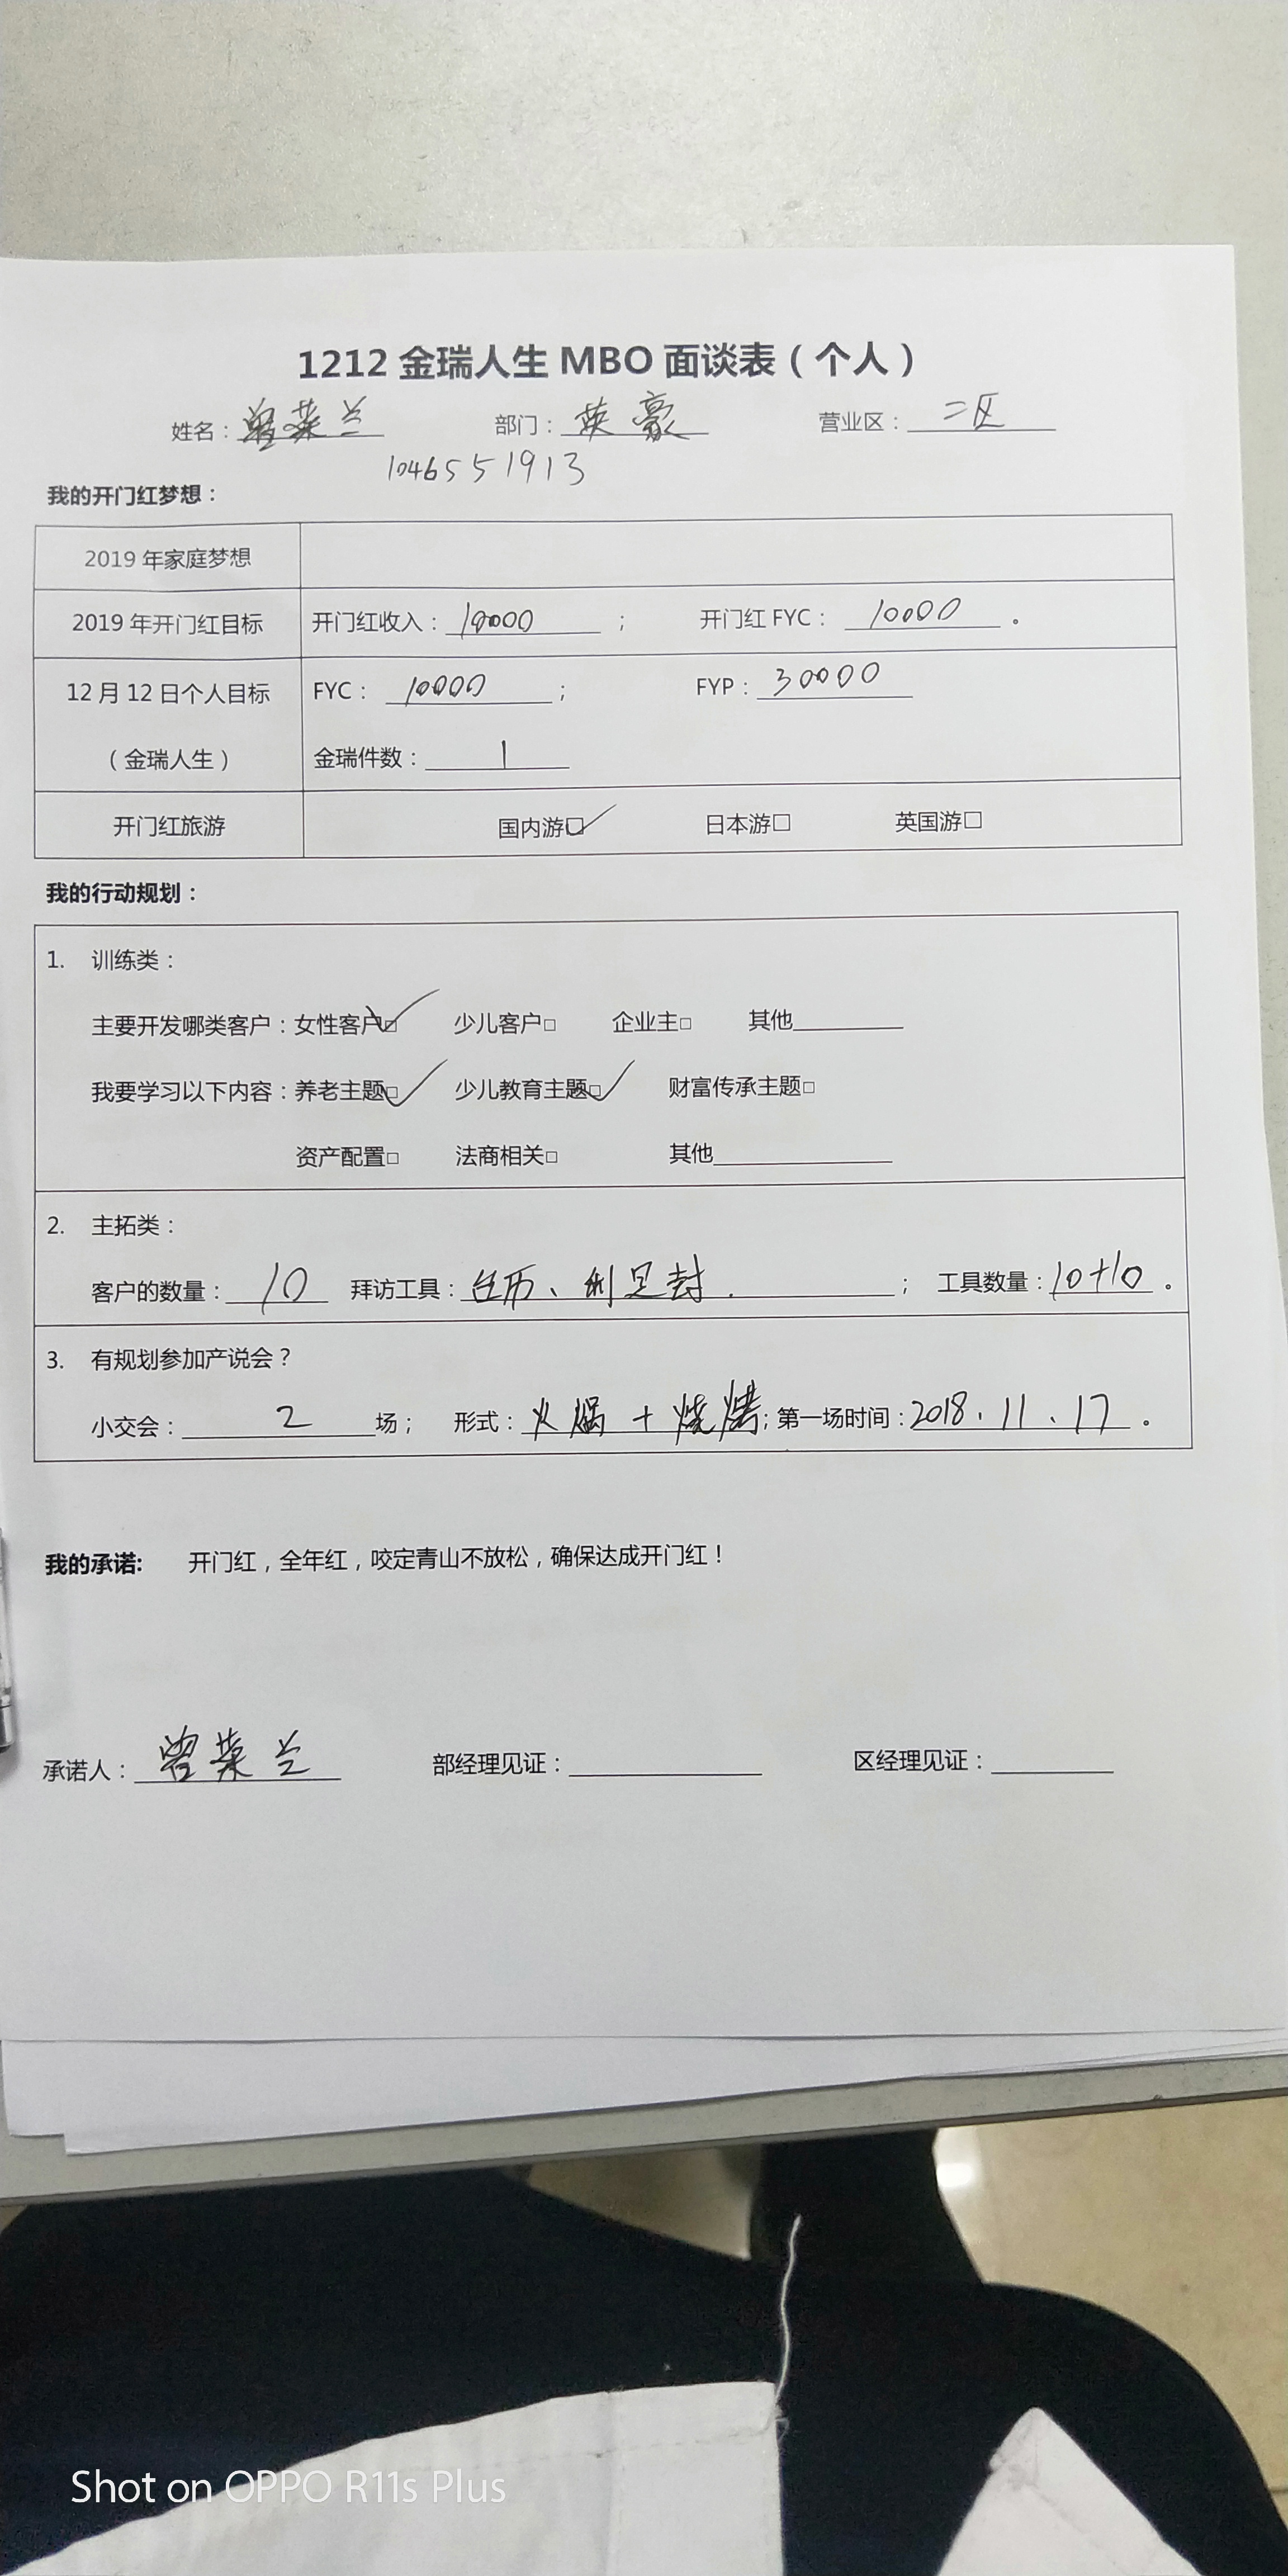 1212 金瑞人生 MBO 面谈表（个人）
姓名：曾菜兰 部门：英豪 营业区：二区
1046551913
我的开门红梦想：
2019 年家庭梦想
2019 年开门红目标 开门红收入：10000； 开门红 FYC：10000。
12 月 12 日个人目标 FYC：10000； FYP：30000
（金瑞人生） 金瑞件数：1
开门红旅游 国内游☑ 日本游□ 英国游□
我的行动规划：
1. 训练类：
主要开发哪类客户：女性客户☑ 少儿客户□ 企业主□ 其他
我要学习以下内容：养老主题☑ 少儿教育主题☑ 财富传承主题□
资产配置□ 法商相关□ 其他
2. 主拓类：
客户的数量：10 拜访工具：台历、利是封.； 工具数量：10+10。
3. 有规划参加产说会？
小交会：2场； 形式：火锅+烧烤；第一场时间：2018.11.17。
我的承诺: 开门红，全年红，咬定青山不放松，确保达成开门红！
承诺人：曾菜兰 部经理见证： 区经理见证：
Shot on OPPO R11s Plus